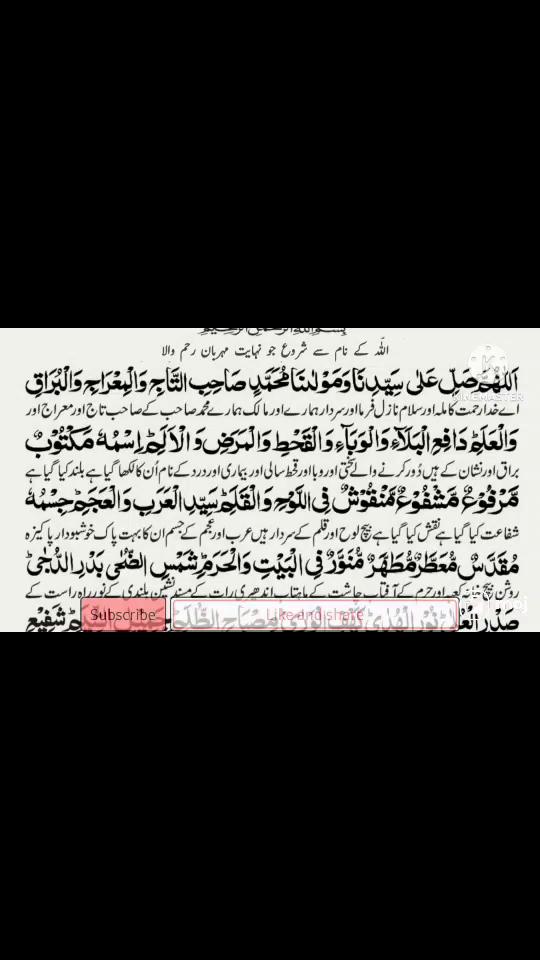 بِسْمِ اللهِ الرَّحْمٰنِ الرَّحِيْمِ
اللہ کے نام سے شروع جو نہایت مہربان رحم والا
اَللّٰهُمَّ صَلِّ عَلٰى سَيِّدِنَا وَمَوْلٰنَا مُحَمَّدٍ صَاحِبِ التَّاجِ وَالْمِعْرَاجِ وَالْبُرَاقِ
KINEMASTER
اے خدا رحمت کاملہ اور سلام نازل فرما اور سردار ہمارے اور مالک ہمارے محمد صاحب کے صاحب تاج اور معراج اور
وَالْعَلَمِ دَافِعِ الْبَلَآءِ وَالْوَبَآءِ وَالْقَحْطِ وَالْمَرَضِ وَالْاَلَمِ اِسْمُهٗ مَكْتُوْبٌ
براق اور نشان کے ہیں دُور کرنے والے سختی اور وبا اور قحط سالی اور بیماری اور درد کے نام اُن کا لکھا گیا ہے بلند کیا گیا ہے
مَّرْفُوْعٌ مَّشْفُوْعٌ مَّنْقُوْشٌ فِى اللَّوْحِ وَالْقَلَمِ سَيِّدِ الْعَرَبِ وَالْعَجَمِ جِسْمُهٗ
شفاعت کیا گیا ہے نقش کیا گیا ہے بیچ لوح اور قلم کے سردار ہیں عرب اور عجم کے جسم ان کا بہت پاک خوشبودار پاکیزہ
مُقَدَّسٌ مُّعَطَّرٌ مُّطَهَّرٌ مُّنَوَّرٌ فِى الْبَيْتِ وَالْحَرَمِ شَمْسِ الضُّحٰى بَدْرِ الدُّجٰى
روشن بیچ خانہ کعبہ اور حرم کے آفتاب چاشت کے ماہتاب اندھیری رات کے مسند نشین بلندی کے نور راہ راست کے
صَدْرِ الْعُلٰى نُوْرِ الْهُدٰى كَهْفِ الْوَرٰى مِصْبَاحِ الظُّلَمِ جَمِيْلِ الشِّيَمِ شَفِيْعِ
Subscribe
Like and share